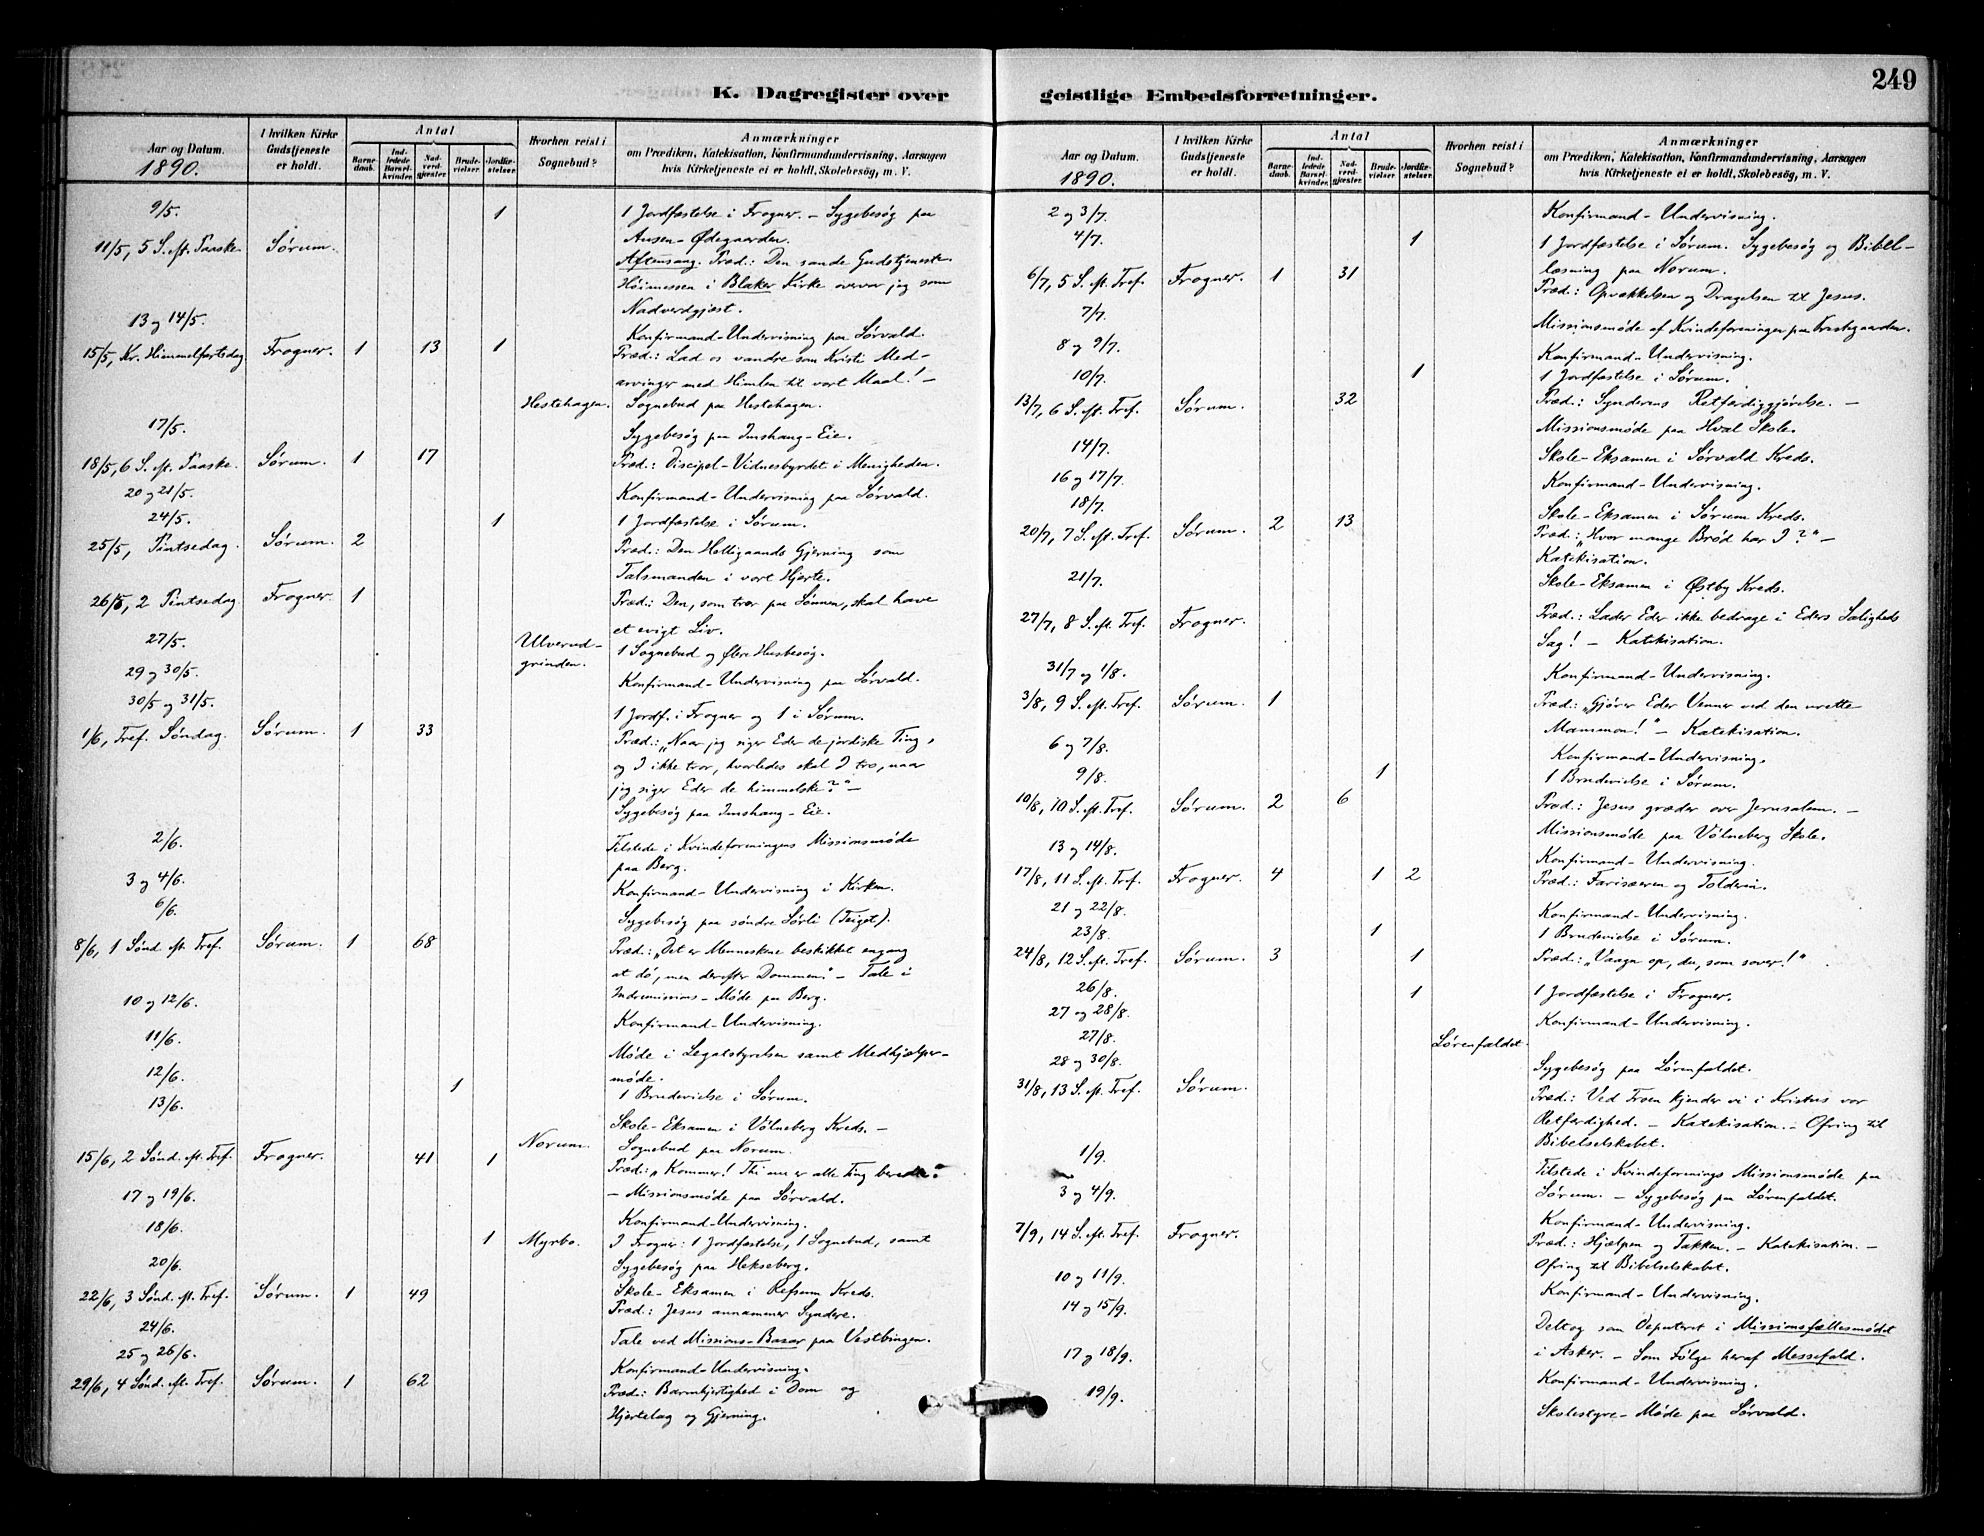 249
K. Dagregister over geistlige Embedsforretninger.
Aar og Datum. 1890.
I hvilken Kirke Gudstjeneste er holdt.
Antal
Barnedaab.
Indledede Barselkvinder.
Nadverdgjæster.
Brudevielser.
Jordfæstelser.
Hvorhen reist i Sognebud?
Anmærkninger
om Prædiken, Katekisation, Konfirmandundervisning, Aarsagen
hvis Kirketjeneste ei er holdt, Skolebesøg, m. V.
9/5. 1 1 Jordfæstelse i Frogner. – Sygebesøg paa
Ausen-Ødegaarden.
11/5, 5 S. eft. Paaske. Sørum. Aftensang. Præd.: Den sande Gudstjeneste.
Høimessen i Blaker Kirke overvar jeg som
Nadverdgjæst.
13 og 14/5. Konfirmand-Undervisning paa Sørvald.
15/5, Kr. Himmelfartsdag Frogner. 1 13 1 Præd.: Lad os vandre som Kristi Med-
arvinger med Himlen til vort Maal! –
Hestehagen. Sognebud paa Hestehagen.
17/5. Sygebesøg paa Imshaug-Eie.
18/5, 6 S. eft. Paaske. Sørum. 1 17 Præd.: Discipel-Vidnesbyrdet i Menigheden.
20 og 21/5. Konfirmand-Undervisning paa Sørvald.
24/5. 1 1 Jordfæstelse i Sørum.
25/5, Pintsedag. Sørum. 2 Præd.: Den Helligaands Gjerning som
Talsmanden i vort Hjerte.
26/5, 2 Pintsedag. Frogner. 1 Præd.: Den, som tror paa Sønnen, skal have
et evigt Liv.
27/5. Ulverud-
grinden. 1 Sognebud og flere Husbesøg.
29 og 30/5. Konfirmand-Undervisning paa Sørvald.
30/5 og 31/5. 1 Jordf. i Frogner og 1 i Sørum.
1/6, Tref. Søndag. Sørum. 1 33 Præd.: „Naar jeg siger Eder de jordiske Ting,
og I ikke tror, hvorledes skal I tro, naar
jeg siger Eder de himmelske?“ –
Sygebesøg paa Imshaug-Eie.
2/6. Tilstede i Kvindeforeningens Missionsmøde
paa Berg.
3 og 4/6. Konfirmand-Undervisning i Kirken.
6/6. Sygebesøg paa søndre Sørli (Teiget).
8/6, 1 Sønd. eft. Tref. Sørum. 1 68 Præd.: „Det er Menneskene beskikket engang
at dø, men derefter Dommen“ – Tale i
Indremissions-Møde paa Berg.
10 og 12/6. Konfirmand-Undervisning.
11/6. Møde i Legatstyrelsen samt Medhjælper-
møde.
12/6. 1 1 Brudevielse i Sørum.
13/6. Skole-Eksamen i Vølneberg Kreds. –
Norum. Sognebud paa Norum.
15/6, 2 Sønd. eft. Tref. Frogner. 41 1 Præd.: „Kommer! Thi nu er alle Ting beredte“
– Missionsmøde paa Sørvald.
17 og 19/6. Konfirmand-Undervisning.
18/6. 1 Myrbo. I Frogner: 1 Jordfæstelse, 1 Sognebud, samt
Sygebesøg paa Hekseberg.
20/6. Skole-Eksamen i Refsum Kreds.
22/6, 3 Sønd. eft. Tref. Sørum. 1 49 Præd.: Jesus annammer Syndere.
24/6. Tale ved Missions-Basar paa Vestbingen.
25 og 26/6. Konfirmand-Undervisning.
29/6, 4 Sønd. eft. Tref. Sørum. 1 62 Præd.: Barmhjertighed i Dom og
Hjertelag og Gjerning.
Aar og Datum. 1890.
I hvilken Kirke Gudstjeneste er holdt.
Antal
Barnedaab.
Indledede Barselkvinder.
Nadverdgjæster.
Brudevielser.
Jordfæstelser.
Hvorhen reist i Sognebud?
Anmærkninger
om Prædiken, Katekisation, Konfirmandundervisning, Aarsagen
hvis Kirketjeneste ei er holdt, Skolebesøg, m. V.
2 og 3/7. Konfirmand-Undervisning.
4/7. 1 1 Jordfæstelse i Sørum. Sygebesøg og Bibel-
læsning paa Norum.
6/7, 5 S. eft. Tref. Frogner. 1 31 Præd.: Opvækkelsen og Dragelsen til Jesus.
7/7. Missionsmøde af Kvindeforeningen paa Prestegaarden.
8 og 9/7. Konfirmand-Undervisning.
10/7. 1 1 Jordfæstelse i Sørum.
13/7, 6 S. eft. Tref. Sørum. 32 Præd.: Synderens Retfærdiggjørelse. –
Missionsmøde paa Hval Skole.
14/7. Skole-Eksamen i Sørvald Kreds.
16 og 17/7. Konfirmand-Undervisning.
18/7. Skole-Eksamen i Sørum Kreds.
20/7, 7 S. eft. Tref. Sørum. 2 13 Præd.: „Hvor mange Brød har I?“ –
Katekisation.
21/7. Skole-Eksamen i Østby Kreds.
27/7, 8 S. eft. Tref. Frogner. Præd.: Lader Eder ikke bedrage i Eders Saligheds
Sag! – Katekisation.
31/7 og 1/8. Konfirmand-Undervisning.
3/8, 9 S. eft. Tref. Sørum. 1 Præd.: „Gjører Eder Venner ved den urette
Mammon!“ – Katekisation.
6 og 7/8. Konfirmand-Undervisning.
9/8. 1 1 Brudevielse i Sørum.
10/8, 10 S. eft. Tref. Sørum. 2 6 Præd.: Jesus græder over Jerusalem. –
Missionsmøde paa Vølneberg Skole.
13 og 14/8. Konfirmand-Undervisning.
17/8, 11 S. eft. Tref. Frogner. 4 1 2 Præd.: Farisæeren og Tolderen.
21 og 22/8. Konfirmand-Undervisning.
23/8. 1 1 Brudevielse i Sørum.
24/8, 12 S. eft. Tref. Sørum. 3 1 Præd.: „Vaagn op, du, som sover!“
26/8. 1 1 Jordfæstelse i Frogner.
27 og 28/8. Konfirmand-Undervisning.
27/8. Lørenfaldet.
28 og 30/8. Sygebesøg paa Lørenfaldet.
31/8, 13 S. eft. Tref. Sørum. Præd.: Ved Troen kjender vi i Kristus vor
Retfærdighed. – Katekisation. – Ofring til
Bibelselskabet.
1/9. Tilstede i Kvindeforenings Missionsmøde paa
Sørum. – Sygebesøg paa Lørenfaldet.
3 og 4/9. Konfirmand-Undervisning.
7/9, 14 S. eft. Tref. Frogner. Præd.: Hjælpen og Takken. – Katekisation. –
Ofring til Bibelselskabet.
10 og 11/9. Konfirmand-Undervisning.
14 og 15/9. Deltog som Deputeret i Missionsfællesmødet
i Asker. – Som Følge heraf Messefald.
17 og 18/9. Konfirmand-Undervisning.
19/9. Skolestyre-Møde paa Sørvald.